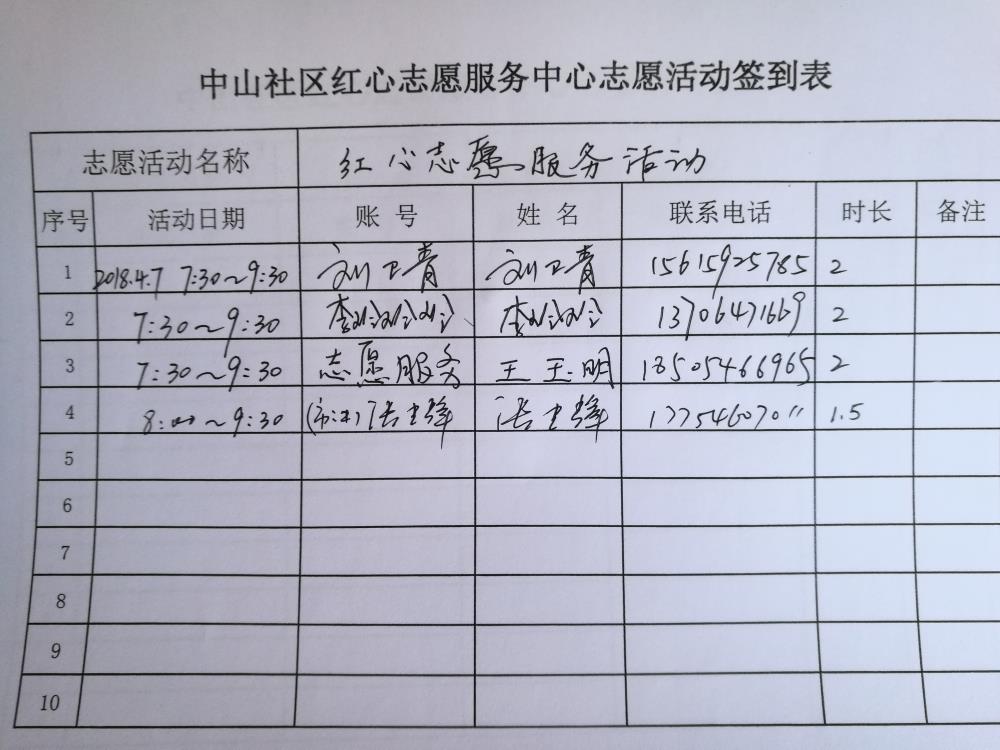 中山社区红心志愿服务中心志愿活动签到表
志愿活动名称 红心志愿服务活动
序号 活动日期 账号 姓名 联系电话 时长 备注
1 2018.4.7 7:30~9:30 刘卫青 刘卫青 15615925785 2
2 7:30~9:30 李 李 13706471669 2
3 7:30~9:30 志愿服务 王玉明 18505466965 2
4 8:00~9:30 张士锋 张士锋 17754607011 1.5
5
6
7
8
9
10